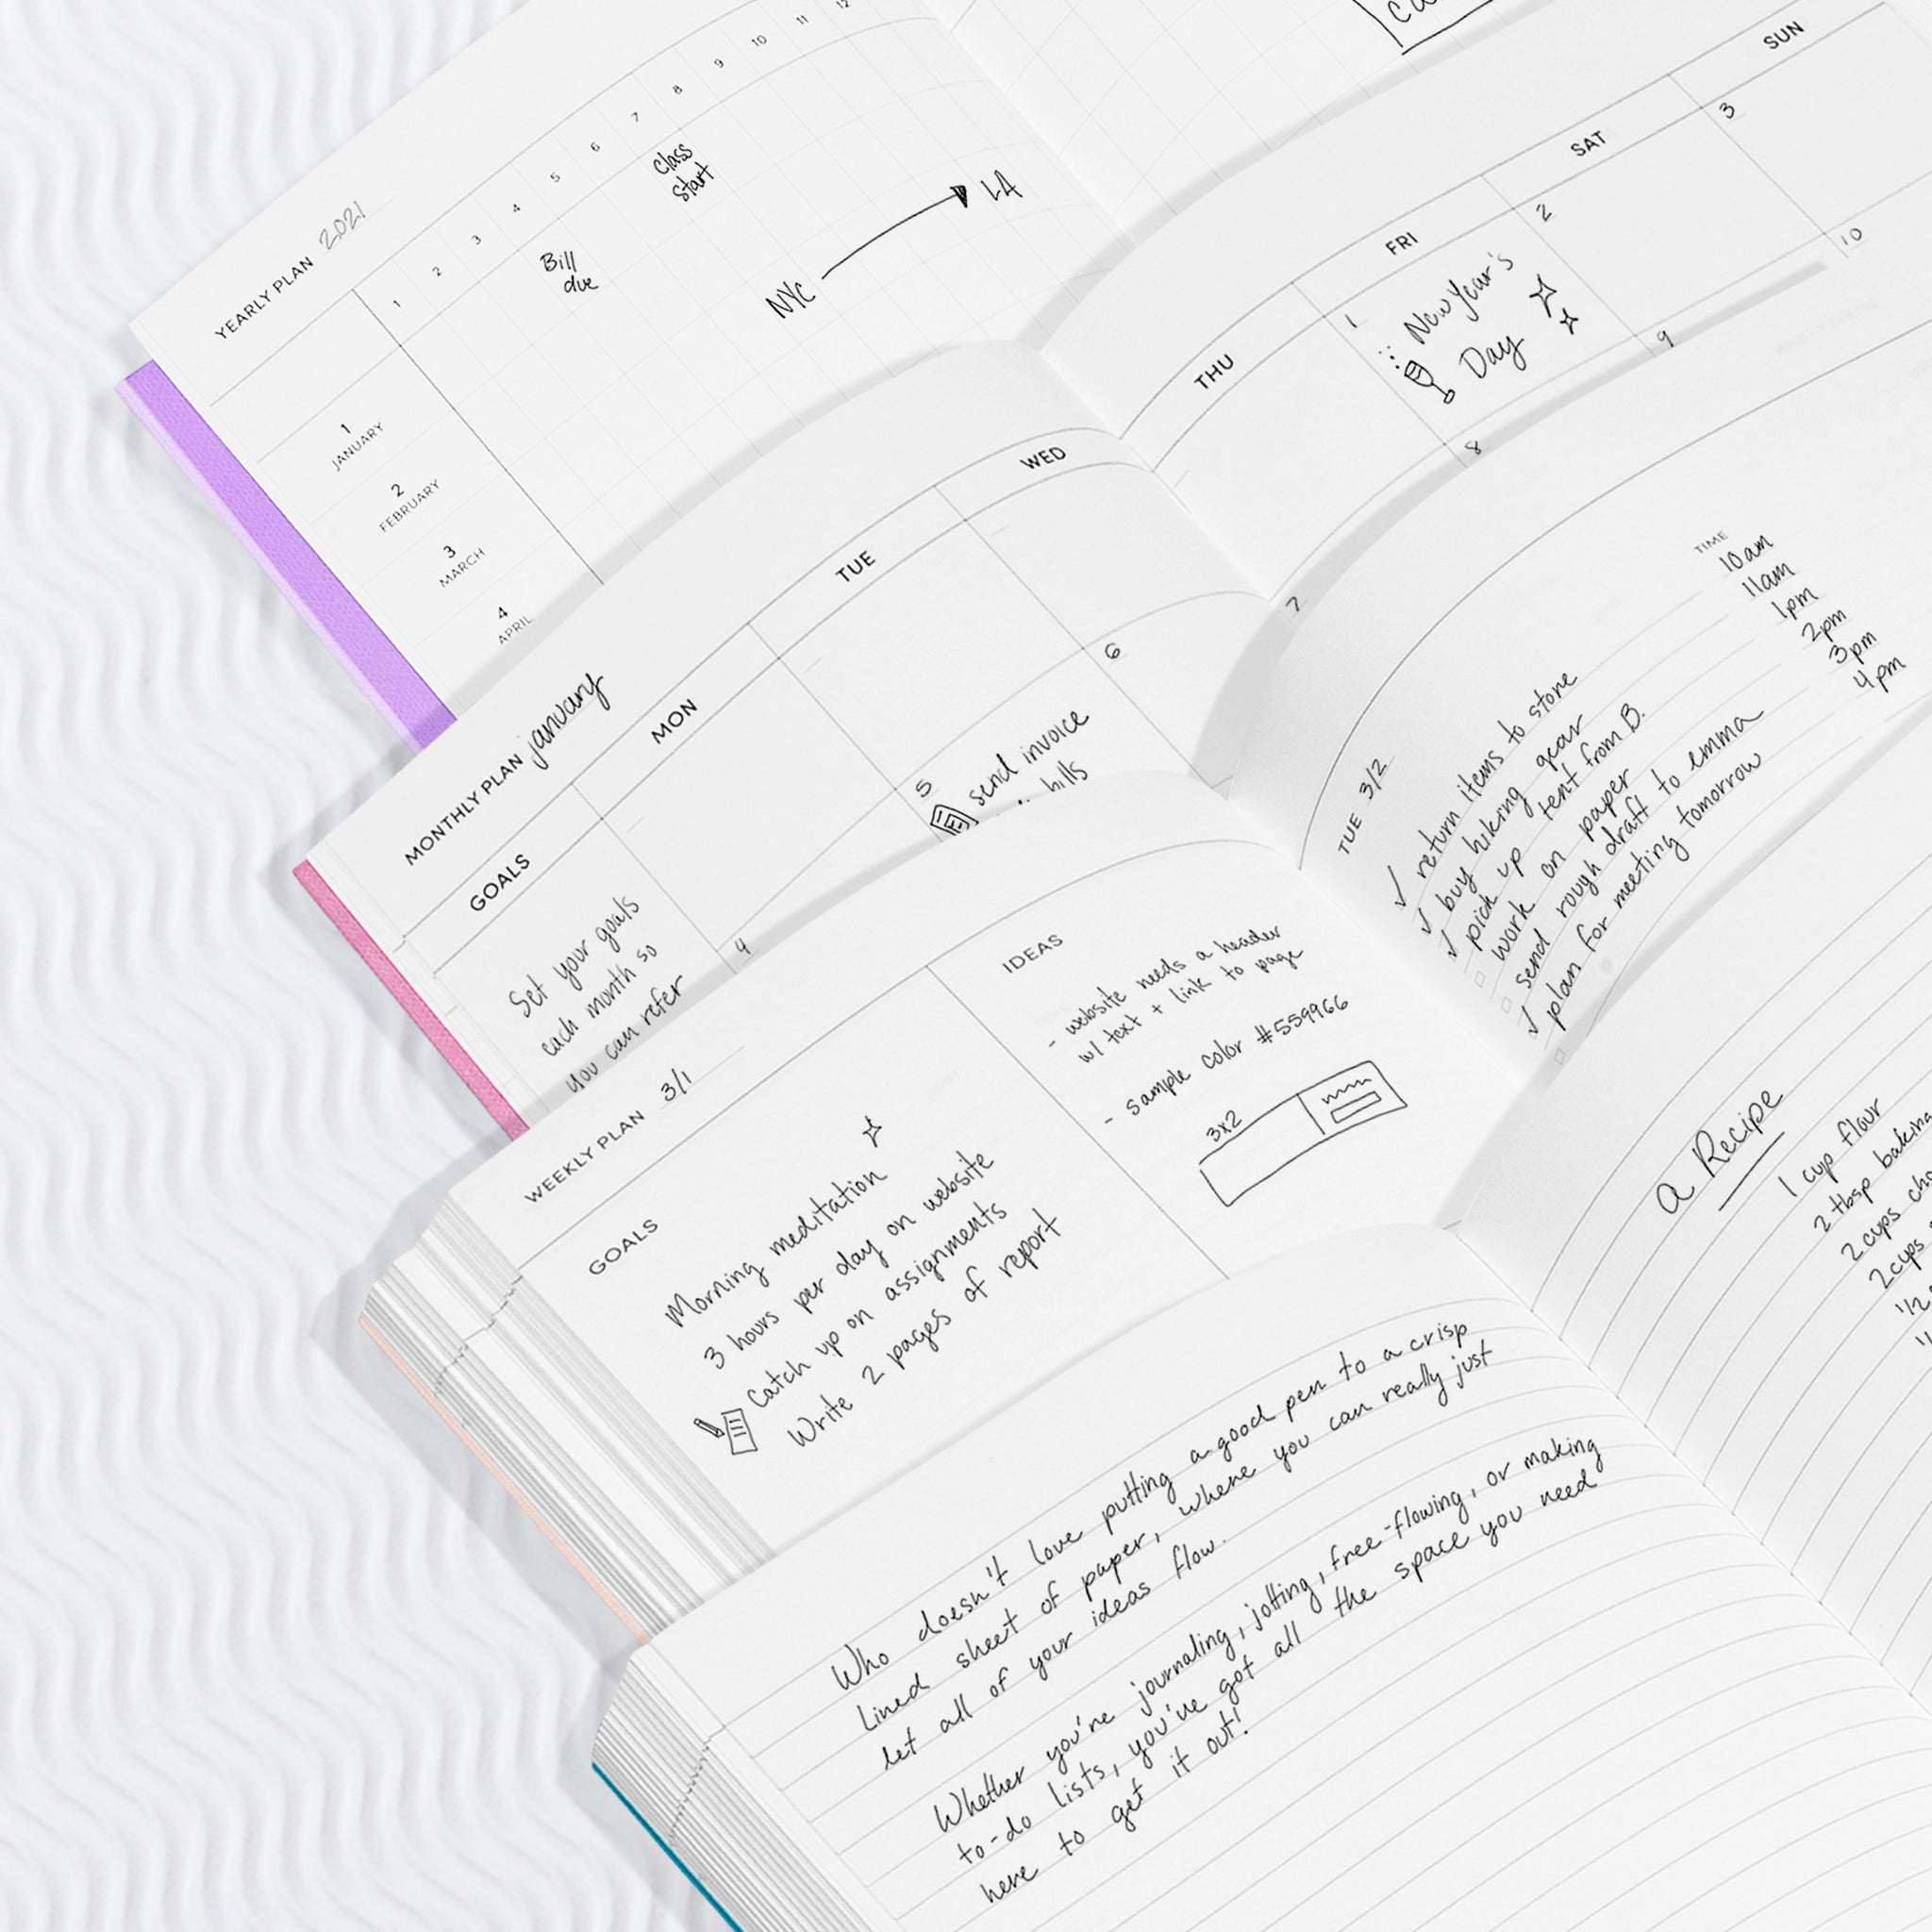 YEARLY PLAN 2021
1 2 3 4 5 6 7 8 9 10 11 12
Class
Start
Bill
due
NYC LA
1
JANUARY
2
FEBRUARY
3
MARCH
4
APRIL
MONTHLY PLAN january
GOALS MON TUE WED THU FRI SAT SUN
1 2 3
New Year's
Day
4 5 6 7 8 9 10
send invoice
bills
Set your goals
each month so
you can refer
WEEKLY PLAN 3/1
GOALS
Morning meditation
3 hours per day on website
Catch up on assignments
Write 2 pages of report
IDEAS
- website needs a header
w/ text + link to page
- sample color #559966
3x2
TUE 3/2
TIME
✓ return items to store 10am
✓ buy hiking gear 11am
✓ pick up tent from B. 1pm
work on paper 2pm
send rough draft to emma 3pm
✓ plan for meeting tomorrow 4pm
Who doesn't love putting a good pen to a crisp
lined sheet of paper, where you can really just
let all of your ideas flow.
Whether you're journaling, jotting, free-flowing, or making
to-do lists, you've got all the space you need
here to get it out!
a Recipe
1 cup flour
2 tbsp baking
2 cups
2 cups
1/2